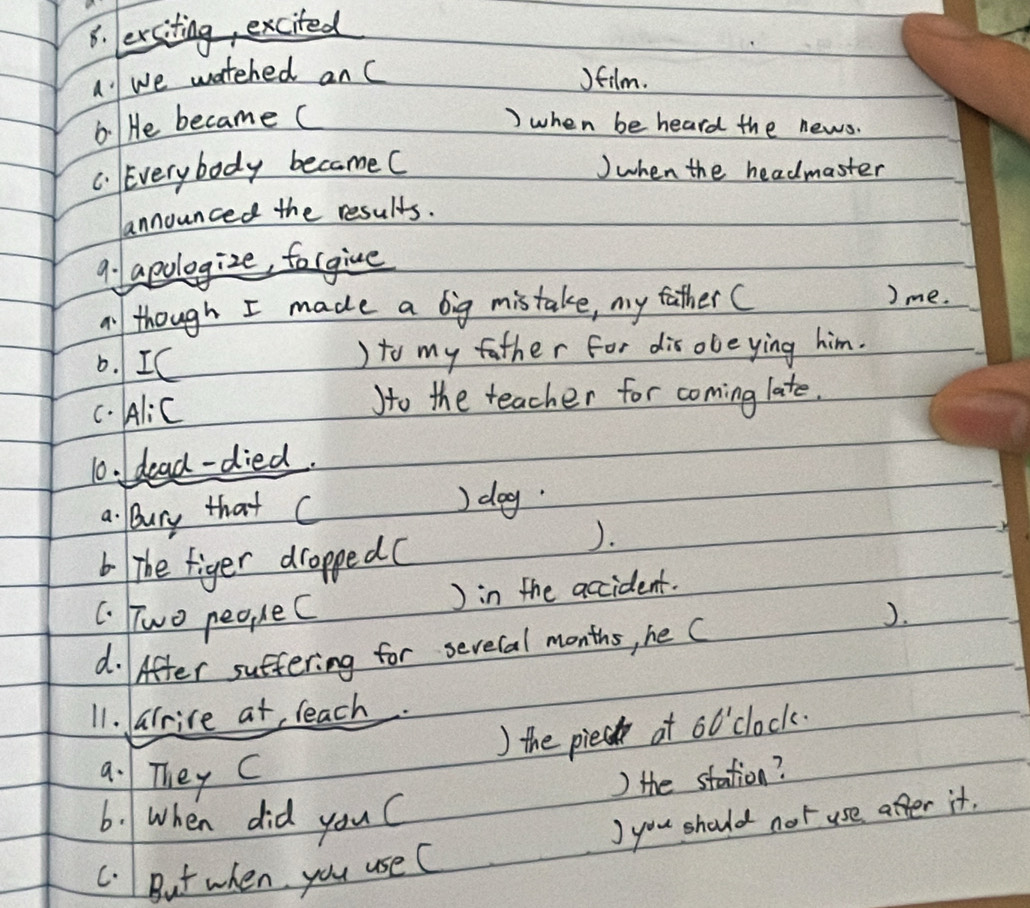 8. exciting, excited
a. We watched an ( ) film.
b. He became ( ) when be heard the news.
c. Everybody became ( ) when the headmaster
announced the results.
9. apologize, forgive
a. though I made a big mistake, my father ( ) me.
b. I ( ) to my father for disobeying him.
c. Ali ( ) to the teacher for coming late.
10. dead - died.
a. Bury that ( ) dog.
b. The tiger dropped ( ).
c. Two people ( ) in the accident.
d. After suffering for several months, he ( ).
11. arrive at, reach.
a. They ( ) the at 6 o'clock.
b. When did you ( ) the station?
c. But when you use ( ) you should not use after it.